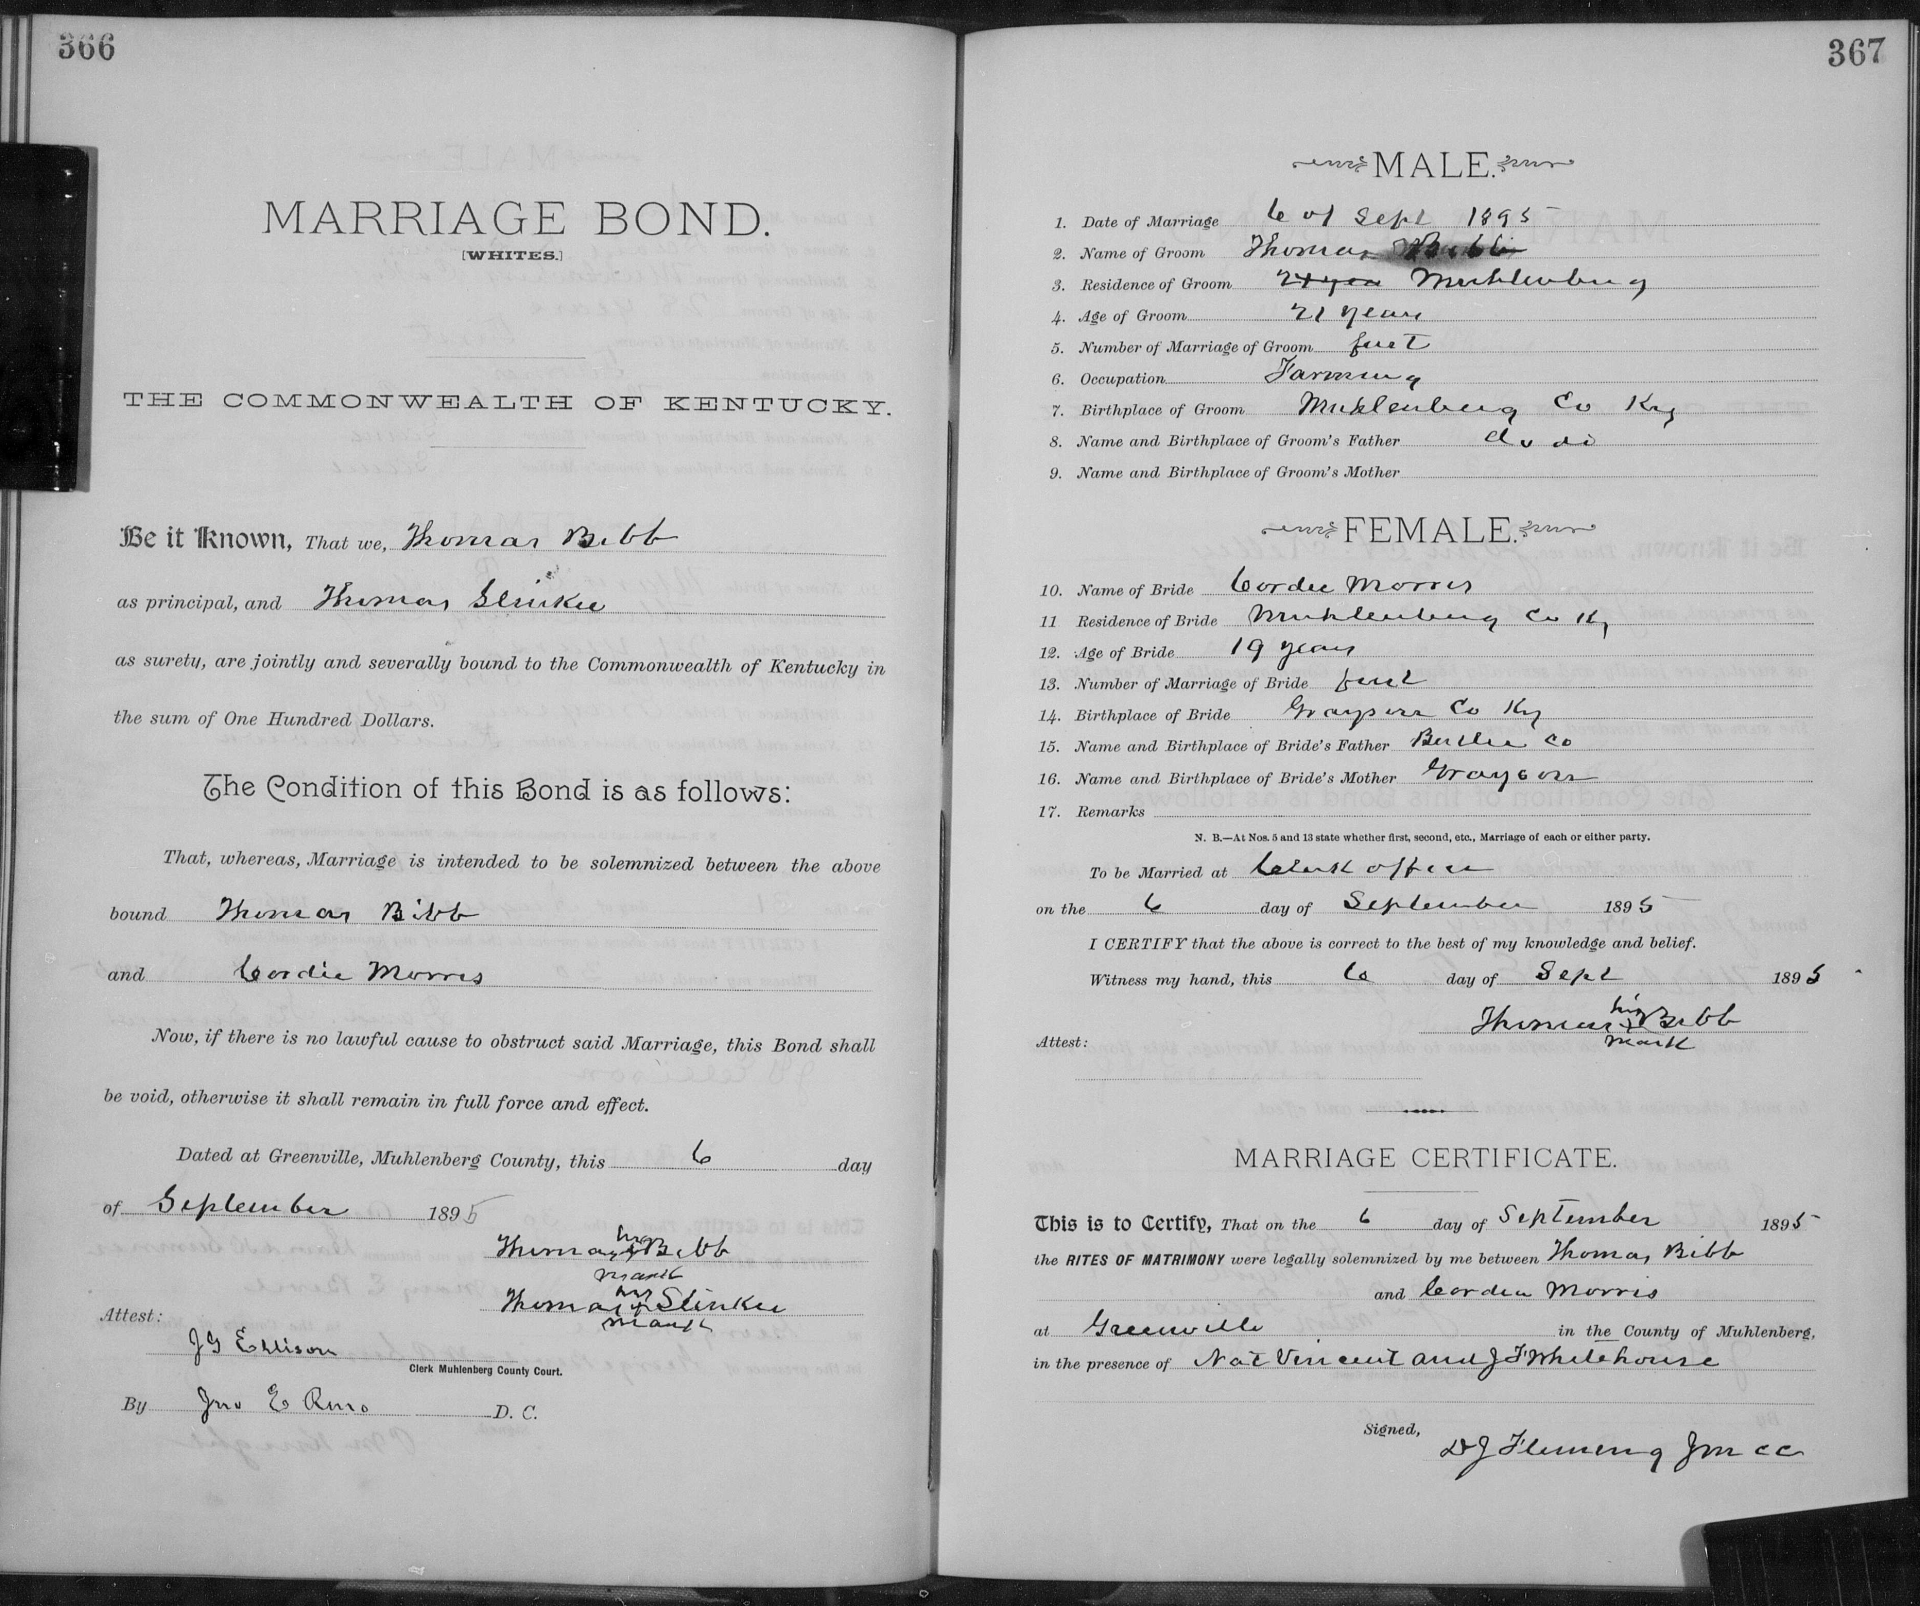 366
MARRIAGE BOND.
[WHITES.]
THE COMMONWEALTH OF KENTUCKY.
Be it Known, That we, Thomas Bibb
as principal, and Thomas Slinker
as surety, are jointly and severally bound to the Commonwealth of Kentucky in
the sum of One Hundred Dollars.
The Condition of this Bond is as follows:
That, whereas, Marriage is intended to be solemnized between the above
bound Thomas Bibb
and Cordie Morris
Now, if there is no lawful cause to obstruct said Marriage, this Bond shall
be void, otherwise it shall remain in full force and effect.
Dated at Greenville, Muhlenberg County, this 6 day
of September 1895
Thomas his x mark Bibb
Thomas his x mark Slinker
Attest:
JG Ellison
Clerk Muhlenberg County Court.
By Jno E Reno D. C.
367
MALE.
1. Date of Marriage 6 of Sept 1895
2. Name of Groom Thomas Bibb
3. Residence of Groom 21 yea Muhlenberg
4. Age of Groom 21 years
5. Number of Marriage of Groom first
6. Occupation Farming
7. Birthplace of Groom Muhlenberg Co Ky
8. Name and Birthplace of Groom's Father
9. Name and Birthplace of Groom's Mother
FEMALE.
10. Name of Bride Cordie Morris
11 Residence of Bride Muhlenberg Co Ky
12. Age of Bride 19 years
13. Number of Marriage of Bride first
14. Birthplace of Bride Grayson Co Ky
15. Name and Birthplace of Bride's Father Butler Co
16. Name and Birthplace of Bride's Mother Grayson
17. Remarks
N. B.—At Nos. 5 and 13 state whether first, second, etc., Marriage of each or either party.
To be Married at Clerk office
on the 6 day of September 1895
I CERTIFY that the above is correct to the best of my knowledge and belief.
Witness my hand, this 6 day of Sept 1895
Thomas his x mark Bibb
Attest:
MARRIAGE CERTIFICATE.
This is to Certify, That on the 6 day of September 1895
the RITES OF MATRIMONY were legally solemnized by me between Thomas Bibb
and Cordie Morris
at Greenville in the County of Muhlenberg,
in the presence of Nat Vincent and J F Whitehouse
Signed,
D J Fleming J M C C